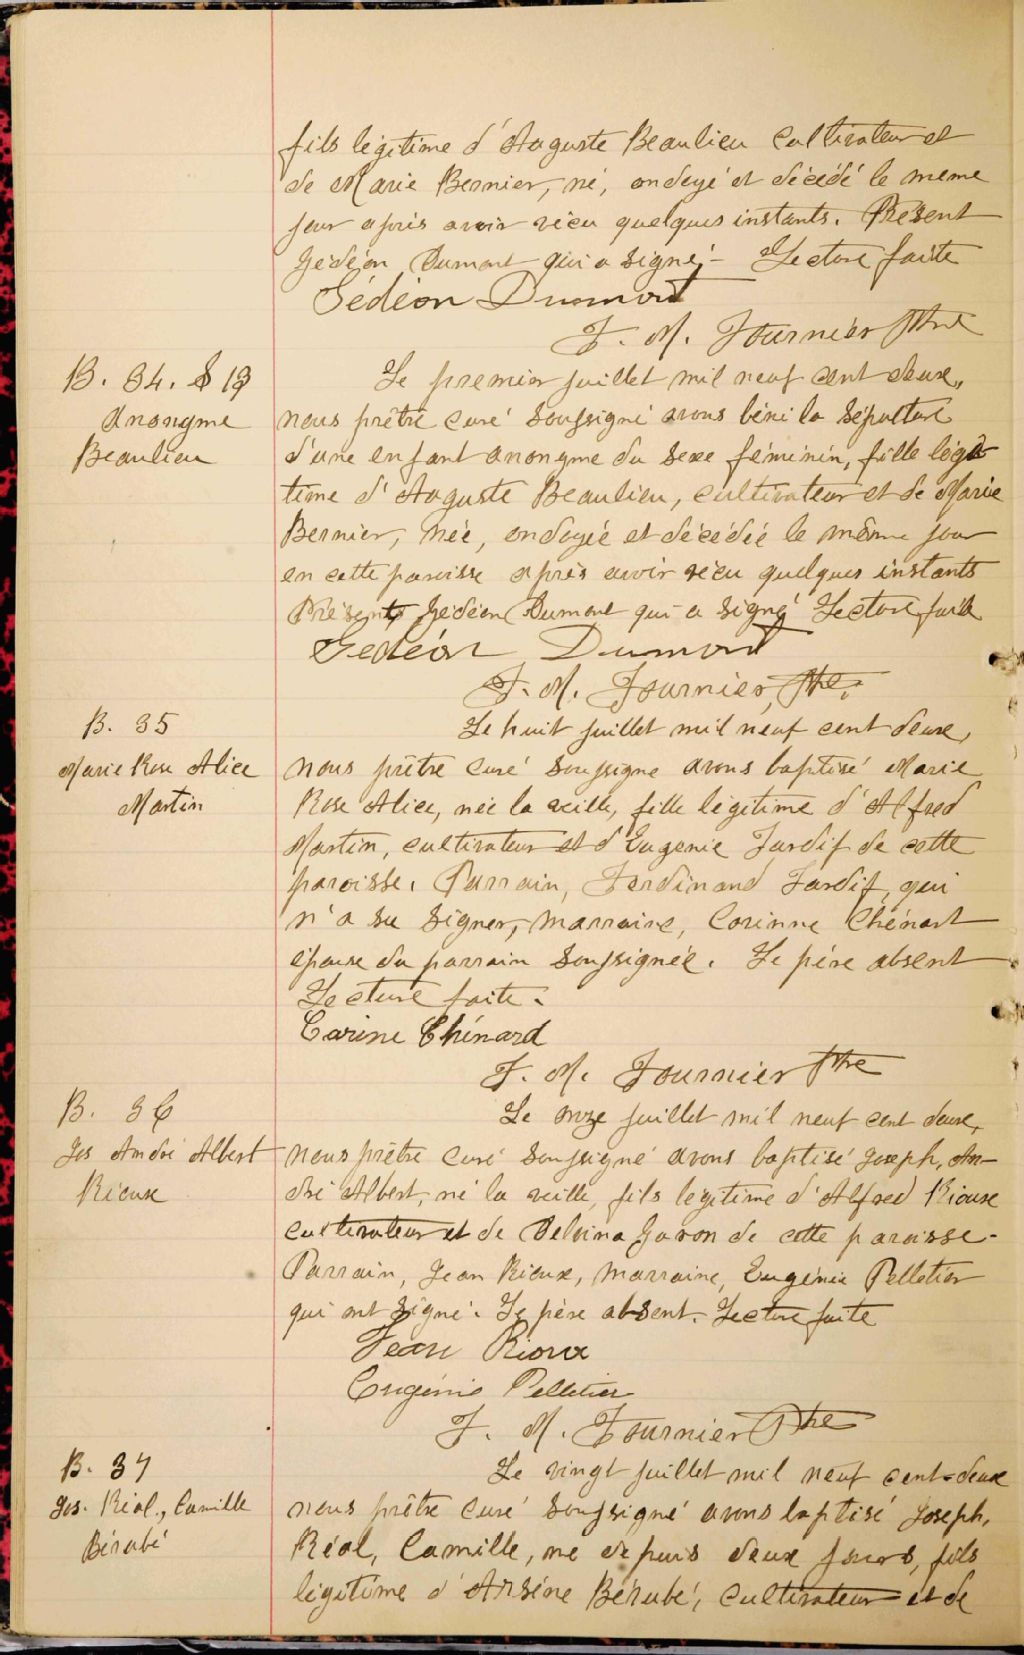 fils légitime d'Auguste Beaulieu cultivateur et
de Marie Bernier, né, ondoyé et décédé le meme
jour après avoir vécu quelques instants. Présent
Gédéon Dumont qui a signé, - Lecture faite
Gédéon Dumont
J. M. Fournier Ptre
B. 34. S 19
Anonyme
Beaulieu
Le premier juillet mil neuf cent deux,
nous prêtre curé soussigné avons béni la sépulture
d'une enfant anonyme du sexe féminin, fille légi-
time d'Auguste Beaulieu, cultivateur et de Marie
Bernier, née, ondoyée et décédée le même jour
en cette paroisse après avoir vécu quelques instants
Présents Gédéon Dumont qui a signé Lecture faite
Gédéon Dumont
J. M. Fournier, Ptre.
B. 35
Marie Rose Alice
Martin
Le huit juillet mil neuf cent deux,
nous prêtre curé soussigné avons baptisé Marie
Rose Alice, née la veille, fille légitime d'Alfred
Martin, cultivateur et d'Eugenie Tardif de cette
paroisse. Parrain, Ferdinand Tardif, qui
n'a su signer, marraine, Corinne Chénart
épouse du parrain soussignée. Le père absent
Lecture faite.
Carine Chénard
J. M. Fournier Ptre
B. 36
Jos André Albert
Rioux
Le onze juillet mil neuf cent deux,
nous prêtre curé soussigné avons baptisé Joseph, An-
dré Albert, né la veille, fils légitime d'Alfred Rioux
cultivateur et de Delvina Garon de cette paroisse-
Parrain, Jean Rioux, marraine, Eugénie Pelletier
qui ont signé. Le père absent. Lecture faite
Jean Rioux
Eugénie Pelletier
J. M. Fournier Ptre
B. 37
Jos. Réal., Camille
Bérubé
Le vingt juillet mil neuf cent-deux
nous prêtre curé soussigné avons baptisé Joseph,
Réal, Camille, né depuis deux jours, fils
légitime d'Arsène Bérubé, cultivateur et de